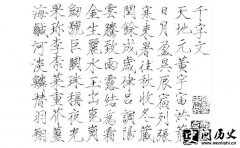 千字文
天地元黃宇宙洪荒
日月盈昃辰宿列張
寒來暑往秋收冬藏
閏餘成歲律呂調陽
雲騰致雨露結為霜
金生麗水玉出崑岡
劍號巨闕珠稱夜光
果珍李柰菜重芥薑
海鹹河淡鱗潛羽翔
历史